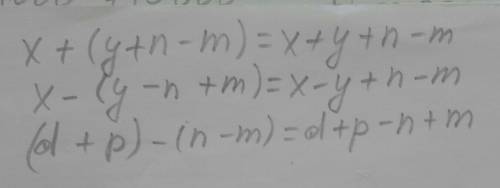 x + (y+n-m)=x+y+n-m
x - (y-n+m)=x-y+n-m
(d+p)-(n-m)=d+p-n+m